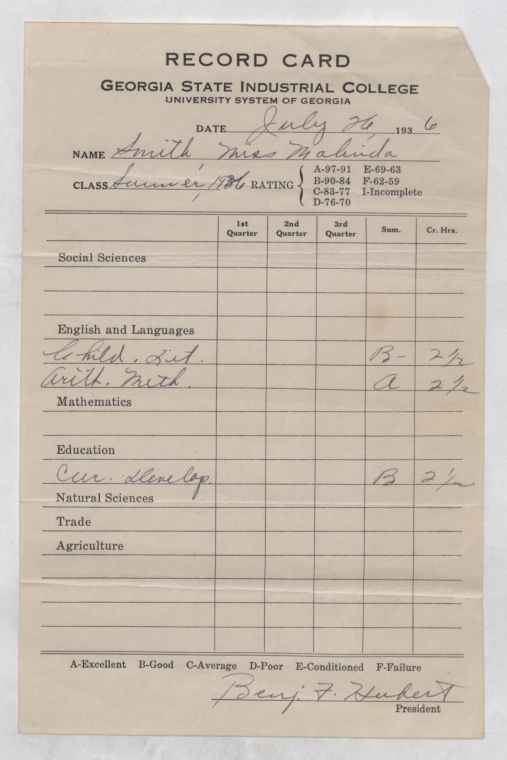 RECORD CARD
GEORGIA STATE INDUSTRIAL COLLEGE
UNIVERSITY SYSTEM OF GEORGIA
DATE July 26, 1936
NAME Smith, Miss Malinda
CLASS Summer, 1936 RATING { A-97-91 E-69-63
B-90-84 F-62-59
C-83-77 I-Incomplete
D-76-70
1st Quarter 2nd Quarter 3rd Quarter Sum. Cr. Hrs.
Social Sciences
English and Languages
Child. Lit. B- 2 1/2
Arith. Meth. A 2 1/2
Mathematics
Education
Cur. Develop. B 2 1/2
Natural Sciences
Trade
Agriculture
A-Excellent B-Good C-Average D-Poor E-Conditioned F-Failure
Benj. F. Hubert
President